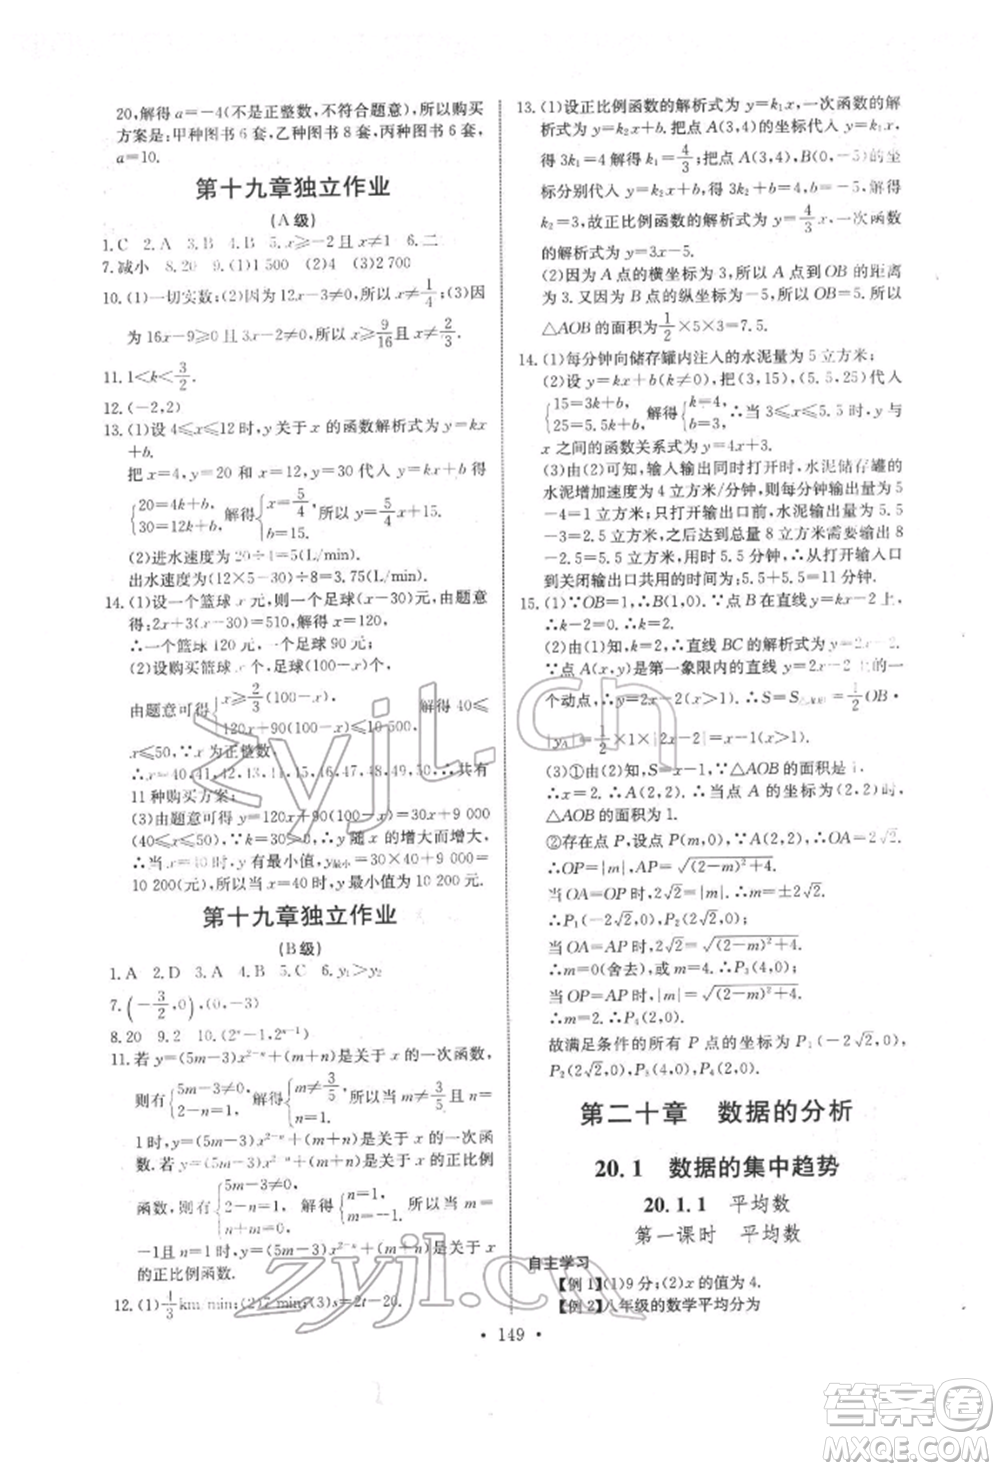 20,解得 a=-4(不是正整数,不符合题意),所以购买
方案是:甲种图书 6 套,乙种图书 8 套,丙种图书 6 套,
a=10.
第十九章独立作业
(A 级)
1.C 2.A 3.B 4.B 5.x≥-2 且 x≠1 6.二
7.减小 8.20 9.(1)1 500 (2)4 (3)2 700
10.(1)一切实数;(2)因为 12x-3≠0,所以 x≠1/4;(3)因
为 16x-9≥0 且 3x-2≠0,所以 x≥9/16 且 x≠2/3.
11.1<k<3/2.
12.(-2,2)
13.(1)设 4≤x≤12 时,y 关于 x 的函数解析式为 y=kx
+b.
把 x=4,y=20 和 x=12,y=30 代入 y=kx+b 得
{20=4k+b, 30=12k+b. 解得{k=5/4, b=15. 所以 y=5/4x+15.
(2)进水速度为 20÷4=5(L/min).
出水速度为(12×5-30)÷8=3.75(L/min).
14.(1)设一个篮球 x 元,则一个足球(x-30)元,由题意
得:2x+3(x-30)=510,解得:x=120,
∴一个篮球 120 元,一个足球 90 元;
(2)设购买篮球 x 个,足球(100-x)个,
由题意可得{x≥2/3(100-x), 120x+90(100-x)≤10 500, 解得 40≤
x≤50,∵x 为正整数,
∴x=40,41,42,43,44,45,46,47,48,49,50,∴共有
11 种购买方案;
(3)由题意可得 y=120x+90(100-x)=30x+9 000
(40≤x≤50),∵k=30>0,∴y 随 x 的增大而增大,
∴当 x=40 时,y 有最小值,y最小=30×40+9 000=
10 200(元),所以当 x=40 时,y 最小值为 10 200 元.
第十九章独立作业
(B 级)
1.A 2.D 3.A 4.B 5.C 6.y₁>y₂
7.(-3/2,0),(0,-3)
8.20 9.2 10.(2ⁿ-1,2ⁿ⁻¹)
11.若 y=(5m-3)x²⁻ⁿ+(m+n)是关于 x 的一次函数,
则有{5m-3≠0, 2-n=1. 解得{m≠3/5, n=1. 所以当 m≠3/5且 n=
1 时,y=(5m-3)x²⁻ⁿ+(m+n)是关于 x 的一次函
数.若 y=(5m-3)x²⁻ⁿ+(m+n)是关于 x 的正比例
函数,则有{5m-3≠0, 2-n=1, m+n=0. 解得{m=-1, n=1. 所以当 m=
-1且 n=1 时,y=(5m-3)x²⁻ⁿ+(m+n)是关于 x
的正比例函数.
12.(1)1/3 km/min;(2)7 min;(3)s=2t-20.
13.(1)设正比例函数的解析式为 y=k₁x,一次函数的解
析式为 y=k₂x+b.把点 A(3,4)的坐标代入 y=k₁x,
得 3k₁=4 解得 k₁=4/3;把点 A(3,4),B(0,-5)的坐
标分别代入 y=k₂x+b,得 3k₂+b=4,b=-5,解得
k₂=3,故正比例函数的解析式为 y=4/3x,一次函数
的解析式为 y=3x-5.
(2)因为 A 点的横坐标为 3,所以 A 到 OB 的距离
为 3.又因为 B 点的纵坐标为-5,所以 OB=5,所以
△AOB 的面积为1/2×5×3=7.5.
14.(1)每分钟向储存罐内注入的水泥量为 5 立方米;
(2)设 y=kx+b(k≠0),把(3,15),(5.5,25)代入
{15=3k+b, 25=5.5k+b, 解得{k=4, b=3. ∴当 3≤x≤5.5 时,y 与
x 之间的函数关系式为 y=4x+3.
(3)由(2)可知,输入输出同时打开时,水泥储存罐的
水泥增加速度为 4 立方米/分钟,则每分钟输出量为 5
-4=1 立方米;只打开输出口前,水泥输出量为 5.5
-3=2.5 立方米,之后达到总量 8 立方米需要输出 8
-2.5=5.5 立方米,用时 5.5 分钟,∴从打开输入口
到关闭输出口共用的时间为;5.5+5.5=11 分钟.
15.(1)∵OB=1,∴B(1,0).∵点 B 在直线 y=kx-2 上,
∴k-2=0.∴k=2.
(2)由(1)知,k=2,∴直线 BC 的解析式为 y=2x-2.
∵点 A(x,y)是第一象限内的直线 y=2x-2 上的一
个动点,∴y=2x-2(x>1).∴S=S△AOB=1/2OB·
|yA|=1/2×1×|2x-2|=x-1(x>1).
(3)①由(2)知,S=x-1(x>1).∵△AOB 的面积是 1.
∴x=2.∴y=2.∴当点 A 的坐标为(2,2)时,
△AOB 的面积为 1.
②存在点 P,设点 P(m,0),∵A(2,2),∴OA=2√2.
∴OP=|m|,AP=√(2-m)²+4.
当 OA=OP 时,∴2√2=|m|.∴m=±2√2.
∴P₁(-2√2,0),P₂(2√2,0).
当 OA=AP 时,∴2√2=√(2-m)²+4.
∴m=0(舍去)或 m=4.∴P₃(4,0).
当 OP=AP 时,∴|m|=√(2-m)²+4.
∴m=2.∴P₄(2,0).
故满足条件的所有 P 点的坐标为 P₁(-2√2,0),
P₂(2√2,0),P₃(4,0),P₄(2,0).
第二十章 数据的分析
20.1 数据的集中趋势
20.1.1 平均数
第一课时 平均数
自主学习
【例 1】(1)9 分;(2)x 的值为 4.
【例 2】八年级的数学平均分为
• 149 •
zyjl.cn
zyjl.cn
答案卷
MXQE.COM